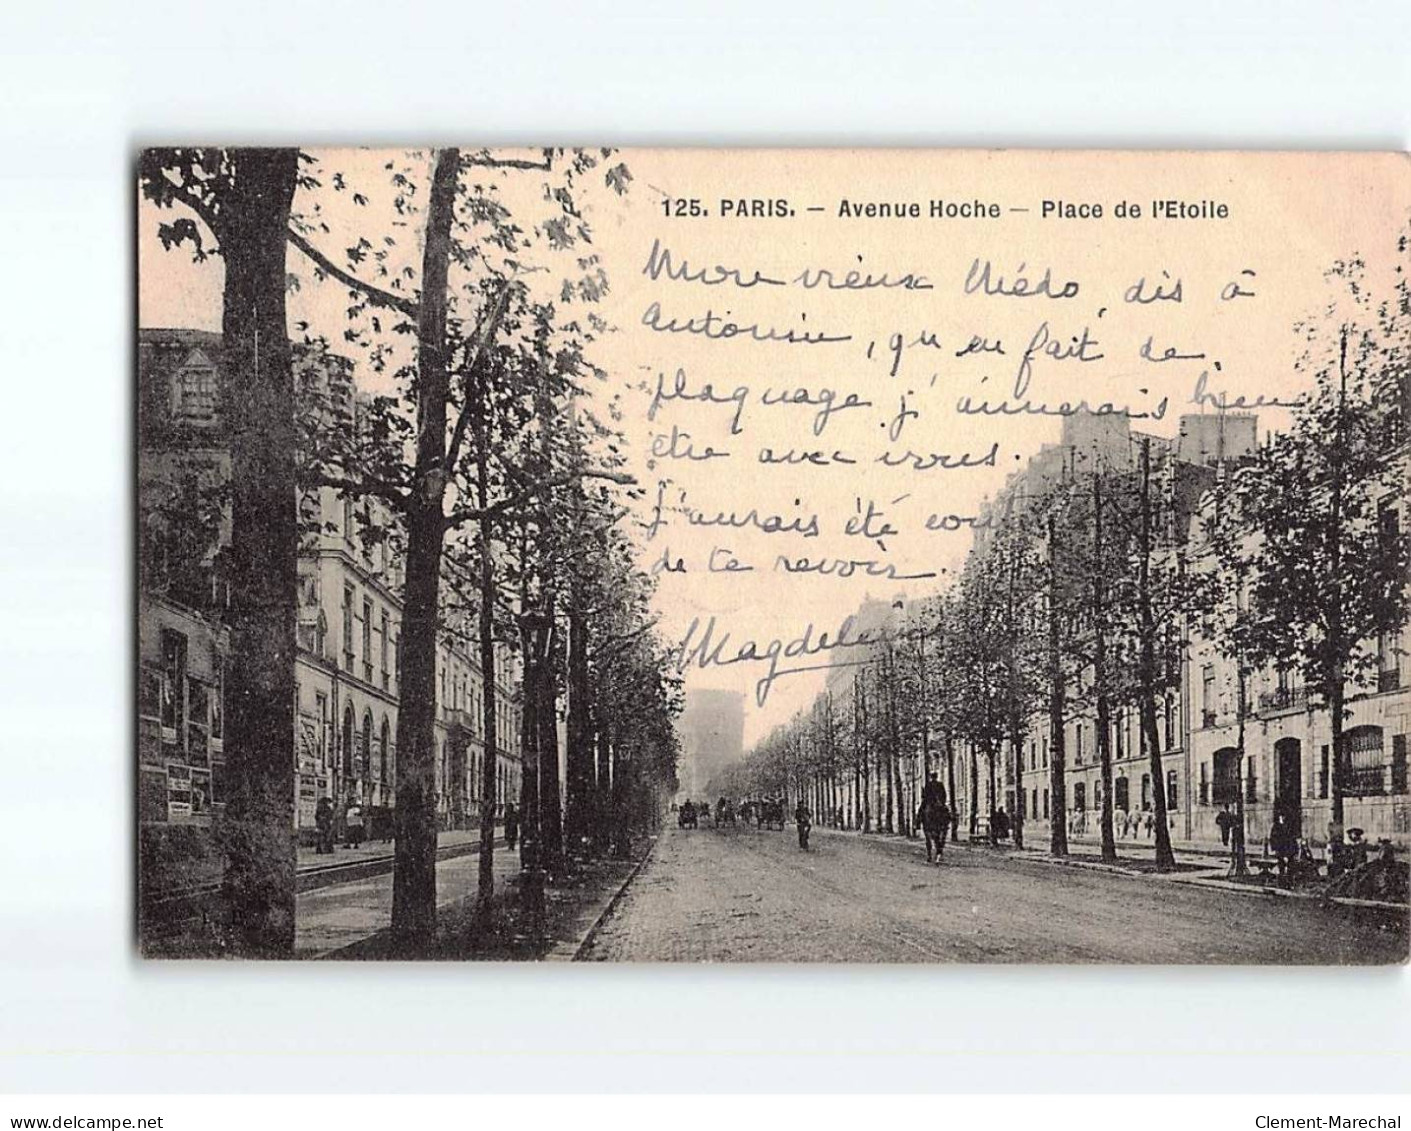 125. PARIS. — Avenue Hoche — Place de l'Etoile
Mon vieux Médo, dis à
Antonin, qu'en fait de
plaquage j'aimerais bien
être avec vous.
J'aurais été
de te revoir
Magdeleine
www.delcampe.net
Clement-Marechal